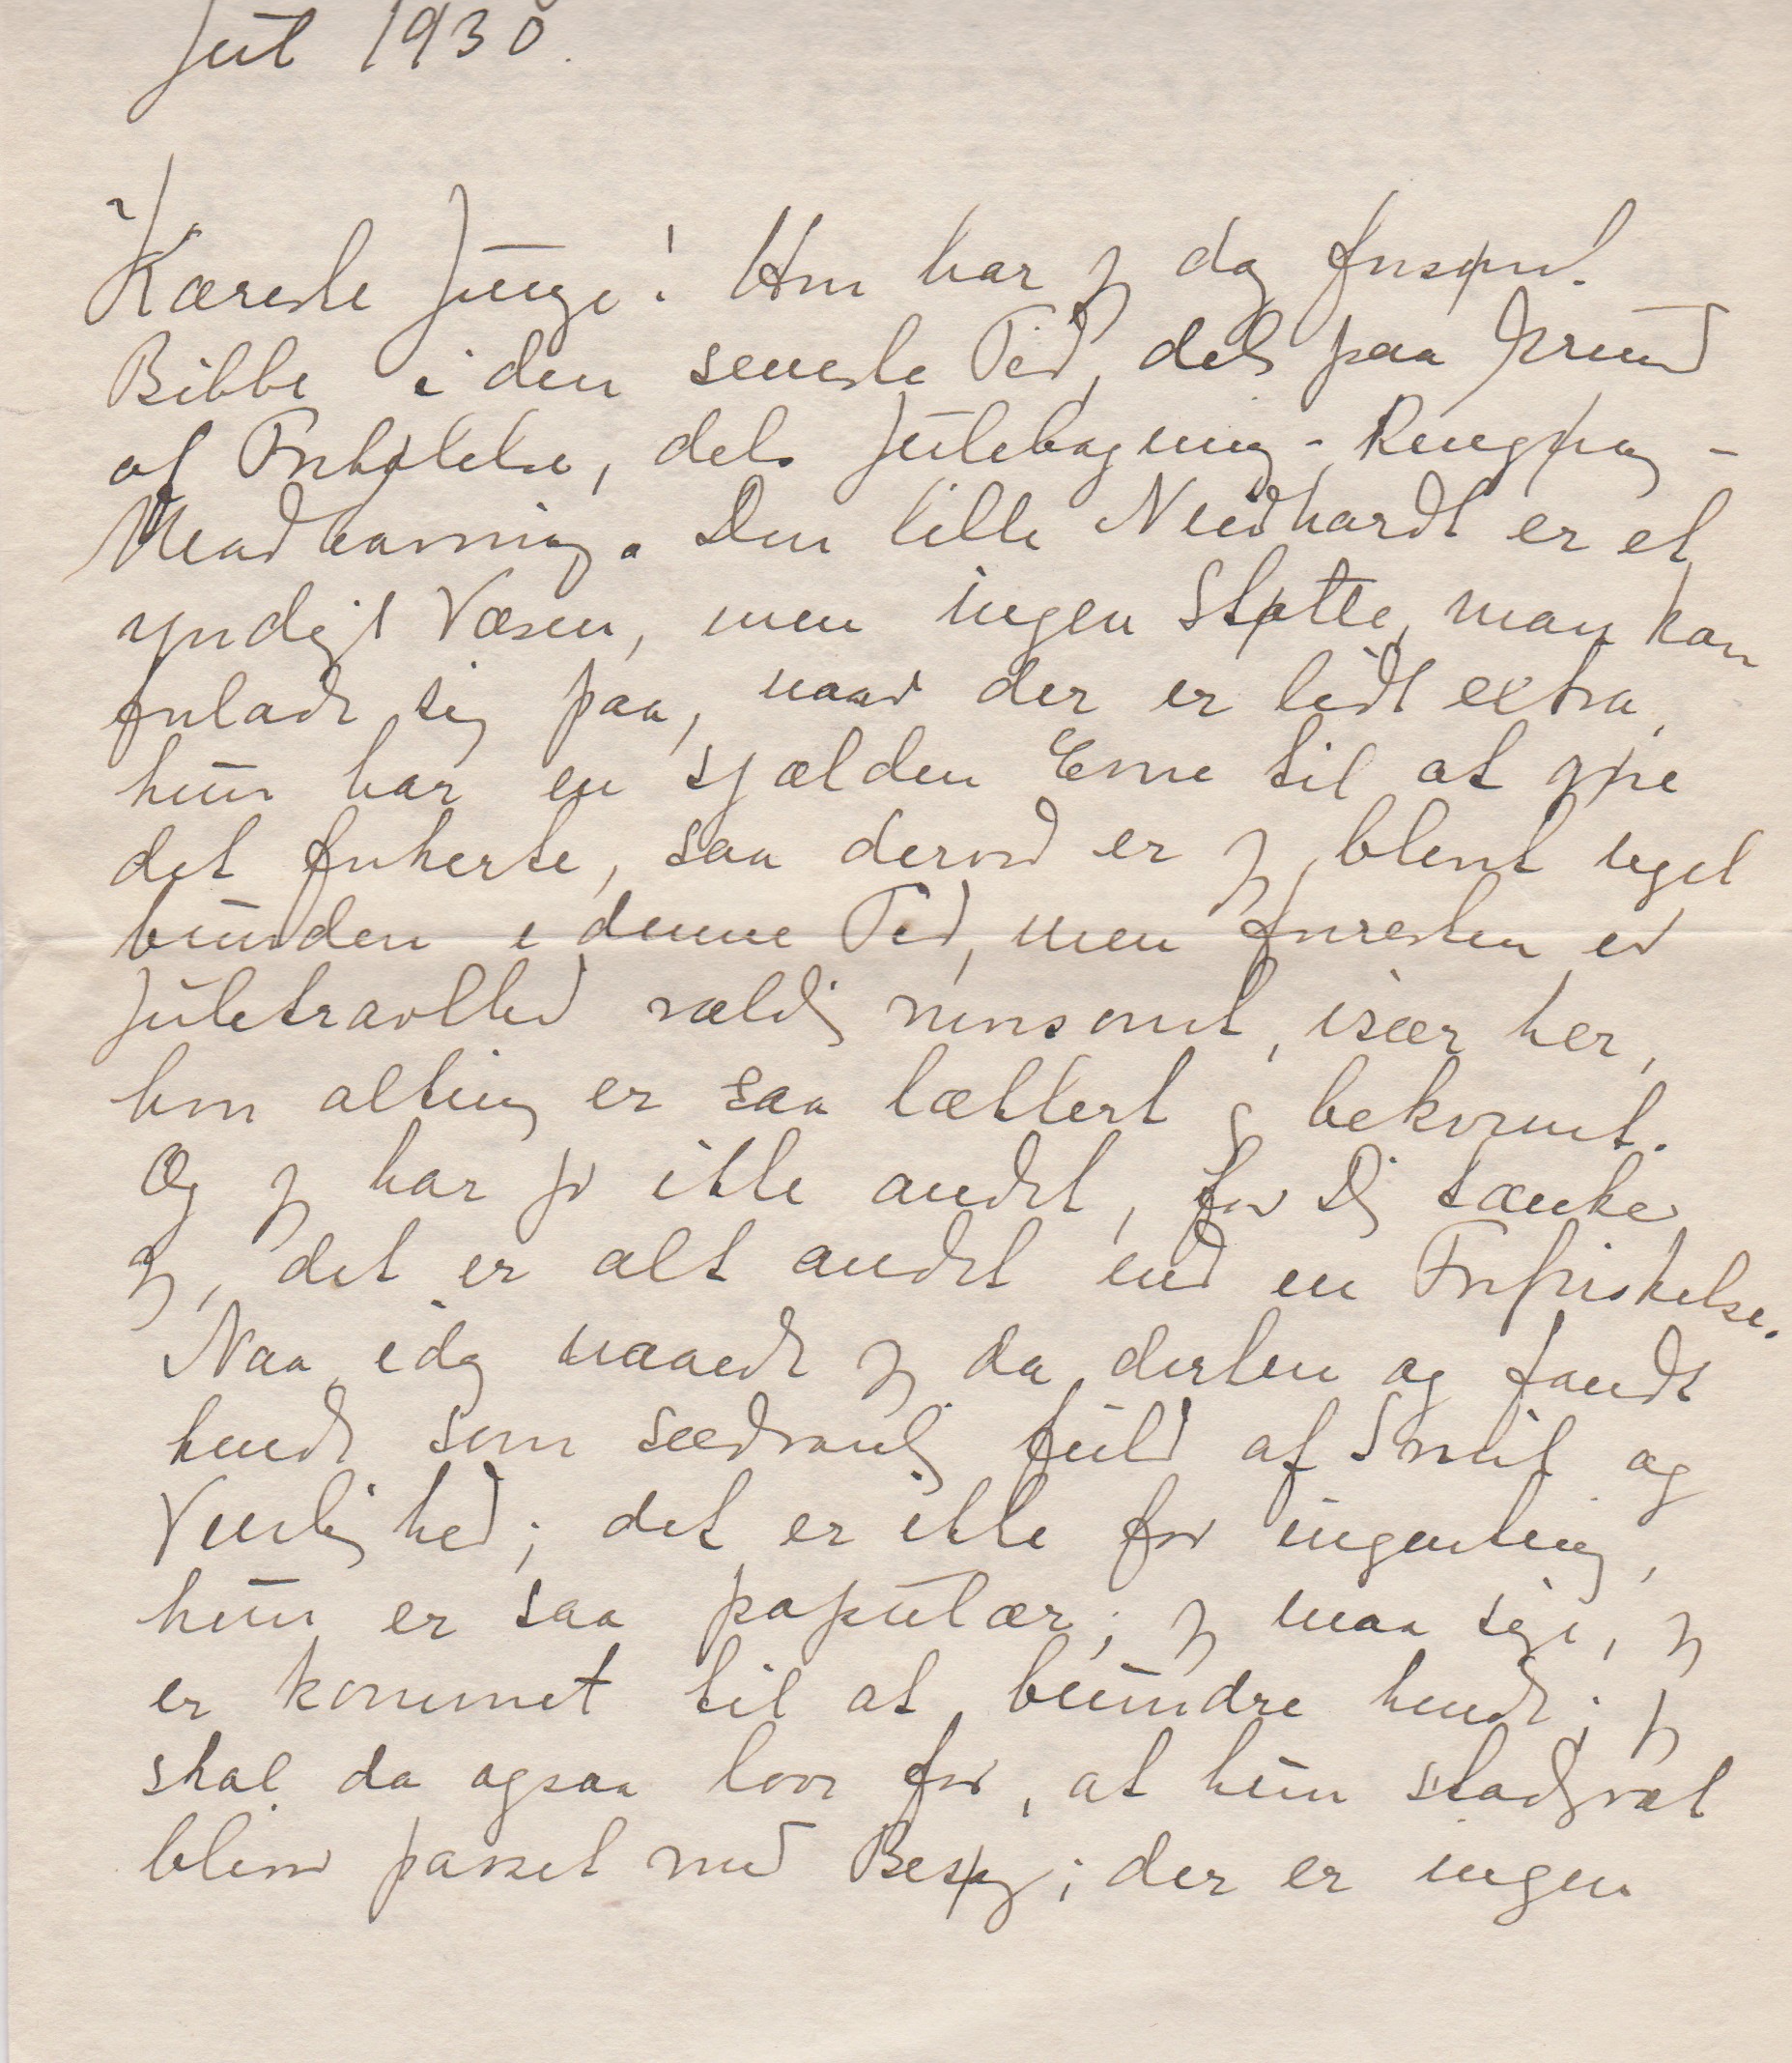 Jul 1930.
Kæreste Junge! Hvor har jeg dog forsømt
Bibbe i den seneste Tid, dels paa Grund
af Forkølelse, dels Julebagning - Rengøring -
Madlavning. Den lille Neidhardt er et
yndigt Væsen, men ingen Støtte, man kan
forlade sig paa, naar der er lidt extra,
hun har en sjælden Evne til at gøre
det forkerte, saa derved er jeg blevet meget
bunden i denne Tid, men forresten er
Juletravlhed vældig morsomt, især her,
hvor alting er saa lættert og bekvemt.
Og jeg har jo ikke andet, for Dig tænker
jeg, det er alt andet end en Forfriskelse.
Naa, idag naaede jeg da derhen og fandt
hende som sædvanlig fuld af Smil og
Venlighed; det er ikke for ingenting,
hun er saa populær; jeg maa sige, jeg
er kommet til at beundre hende; jeg
skal da ogsaa love for, at hun stadsvæk
bliver passet med Besøg; der er ingen